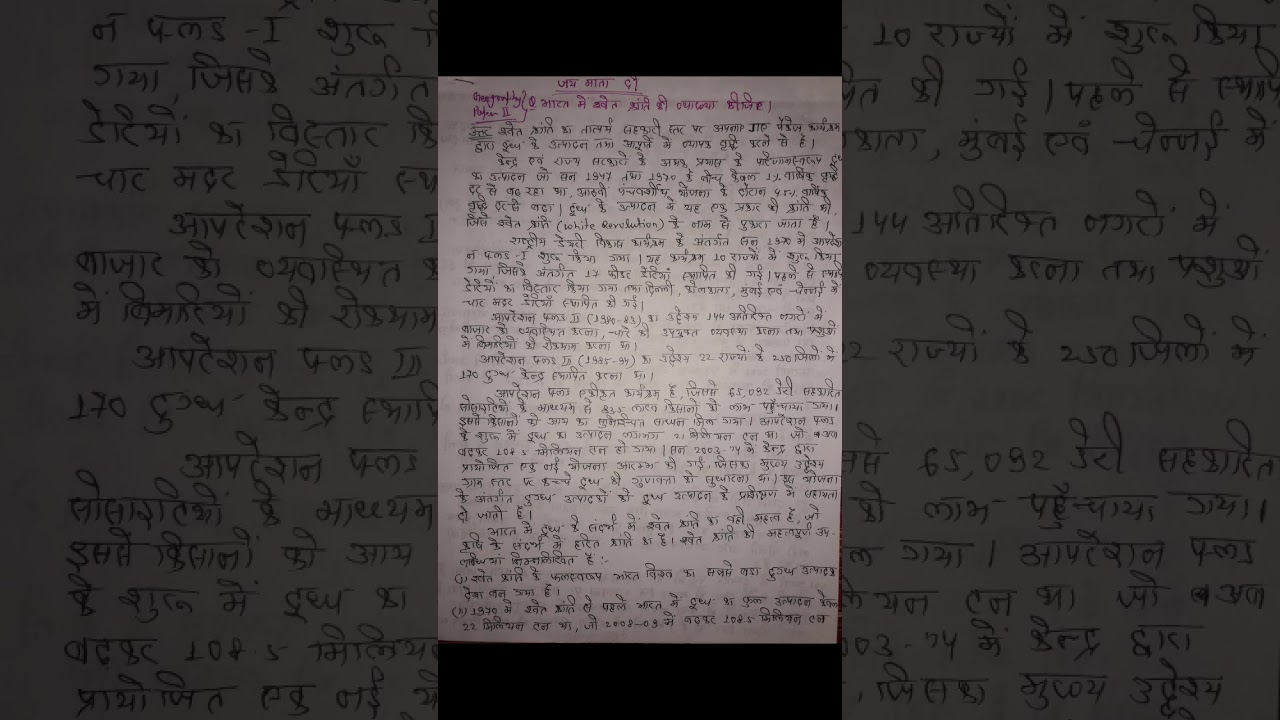 जय माता दी
Geography Paper II
Q. भारत में श्वेत क्रांति की व्याख्या कीजिए।
उत्तर श्वेत क्रांति का तात्पर्य सहकारी स्तर पर अपनाए गए पैकेज कार्यक्रम
द्वारा दुग्ध के उत्पादन तथा आपूर्ति में व्यापक वृद्धि करने से है।
केन्द्र एवं राज्य सरकारों के अथक प्रयास के परिणामस्वरूप दुग्ध
का उत्पादन जो सन 1947 तथा 1970 के बीच केवल 1% वार्षिक वृद्धि
दर से बढ़ रहा था, आठवीं पंचवर्षीय योजना के दौरान 4.5% वार्षिक
वृद्धि दर से बढ़ा। दुग्ध के उत्पादन में यह एक प्रकार की क्रांति थी,
जिसे श्वेत क्रांति (White Revolution) के नाम से पुकारा जाता है।
राष्ट्रीय डेयरी विकास कार्यक्रम के अंतर्गत सन 1970 में आपरेश
न फ्लड -I शुरू किया गया। यह कार्यक्रम 10 राज्यों में शुरू किया
गया, जिसके अंतर्गत 17 फीडर डेरियाँ स्थापित की गई। पहले से स्थापि
डेरियों का विस्तार किया गया तथा दिल्ली, कोलकाता, मुंबई एवं चेन्नई में
चार मदर डेरियाँ स्थापित की गई।
आपरेशन फ्लड II (1980-83) का उद्देश्य 144 अतिरिक्त नगरों में
बाजार को व्यवस्थित करना, चारे की उपयुक्त व्यवस्था करना तथा पशुओं
में बिमारियों की रोकथाम करना था।
आपरेशन फ्लड III (1985-94) का उद्देश्य 22 राज्यों के 250 जिलों में
170 दुग्ध केन्द्र स्थापित करना था।
आपरेशन फ्लड एकीकृत कार्यक्रम है, जिससे 65,092 डेरी सहकारित
सोसाइटियों के माध्यम से 835 लाख किसानों को लाभ पहुँचाया गया।
इससे किसानों को आय का सुनिश्चित साधन मिल गया। आपरेशन फ्लड
के शुरू में दुग्ध का उत्पादन लगभग 21 मिलियन टन था जो अब
बढ़कर 108.5 मिलियन टन हो गया। सन 2003-74 में केन्द्र द्वारा
प्रायोजित एक नई योजना आरम्भ की गई, जिसका मुख्य उद्देश्य
ग्राम स्तर पर कच्चे दुग्ध की गुणवत्ता को सुधारना था। इस योजना
के अंतर्गत दुग्ध उत्पादकों को दुग्ध उत्पादन के प्रशिक्षण में सहायता
दी जाती है।
भारत में दुग्ध के संदर्भ में श्वेत क्रांति का वही महत्व है, जो
कृषि के संदर्भ में हरित क्रांति का है। श्वेत क्रांति की महत्वपूर्ण उप-
लब्धियां निम्नलिखित है :-
(i) श्वेत क्रांति के फलस्वरूप भारत विश्व का सबसे बड़ा दुग्ध उत्पादक
देश बन गया है।
(ii) 1970 में श्वेत क्रांति से पहले भारत में दुग्ध का कुल उत्पादन केवल
22 मिलियन टन था, जो 2008-09 में बढ़कर 108.5 मिलियन टन